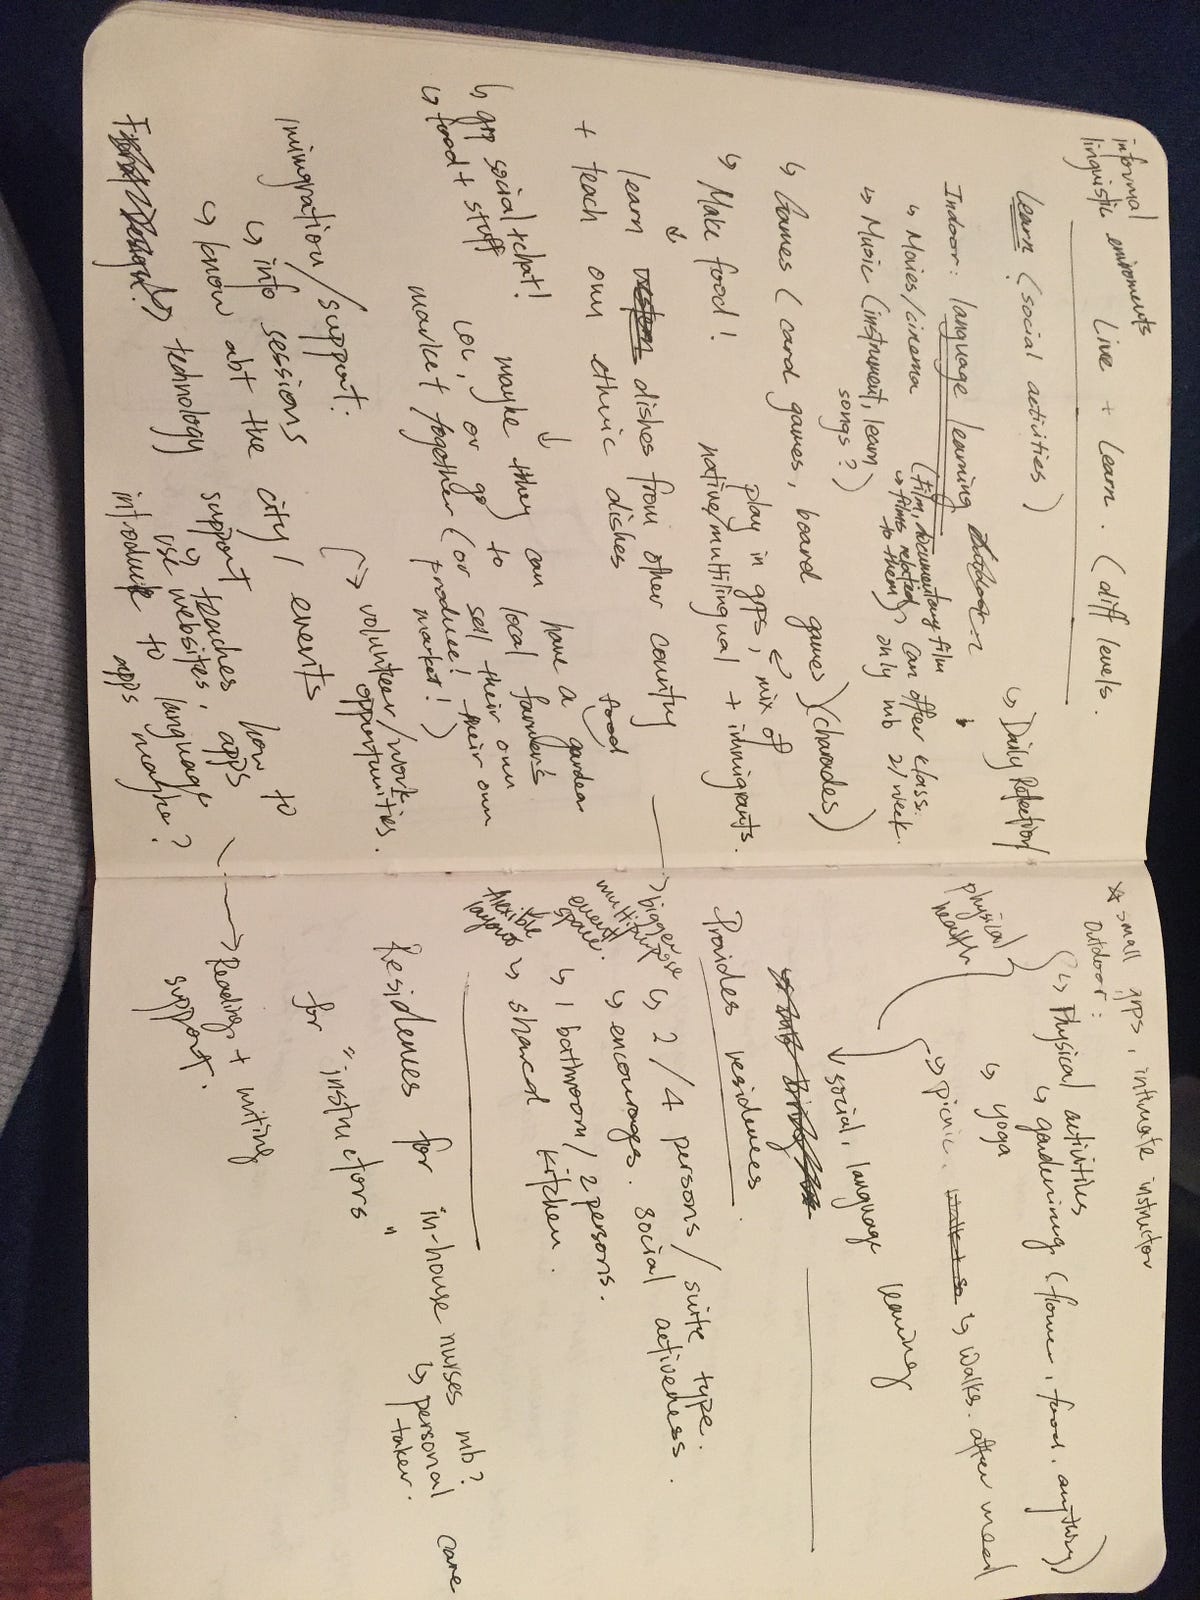 informal
linguistic enviroments
Live + Learn. (diff levels.
Learn (social activities)
↳ Daily Reflection/
Indoor: language learning
↳ Movies/cinema (film, documentary film
↳ films related to them) can offer class.
only mb 2/week.
↳ Music (instrument, learn
songs?)
↳ Games (card games, board games) (charades)
play in gps, mix of
native/multilingual + immigrants.
↳ Make food!
learn dishes from other country
+ teach own ethnic dishes
food
↳ grp social + chat! maybe they can have a garden
↳ food + stuff
LOL, or go to local farmers
market together (or sell their own
produce! their own
market!)
immigration/support:
↳ volunteer/work
opportunities.
↳ info sessions
↳ know abt the city/events
↳ technology support teaches how to
use websites, apps
introduce to language
apps maybe?
→ Reading + writing
support.
* small grps, intimate instructor
Outdoor:
↳ Physical activities
↳ gardening (flower, food, anything)
physical
health
↳ yoga
↳ picnic. ↳ walks. after meal
↓ social, language learning
Provides residences.
→ bigger
multipurpose
event
space.
flexible
layout
↳ 2/4 persons/suite type.
↳ encourages. social activeness.
↳ 1 bathroom/2 persons.
↳ shared kitchen.
Residences for in-house nurses mb?
↳ personal care
taker.
for "instructors"